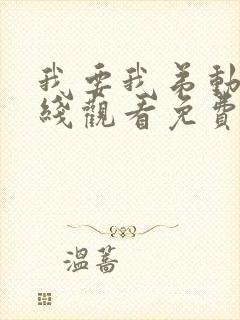 我要我弟動
綫觀看免費
溫蒿